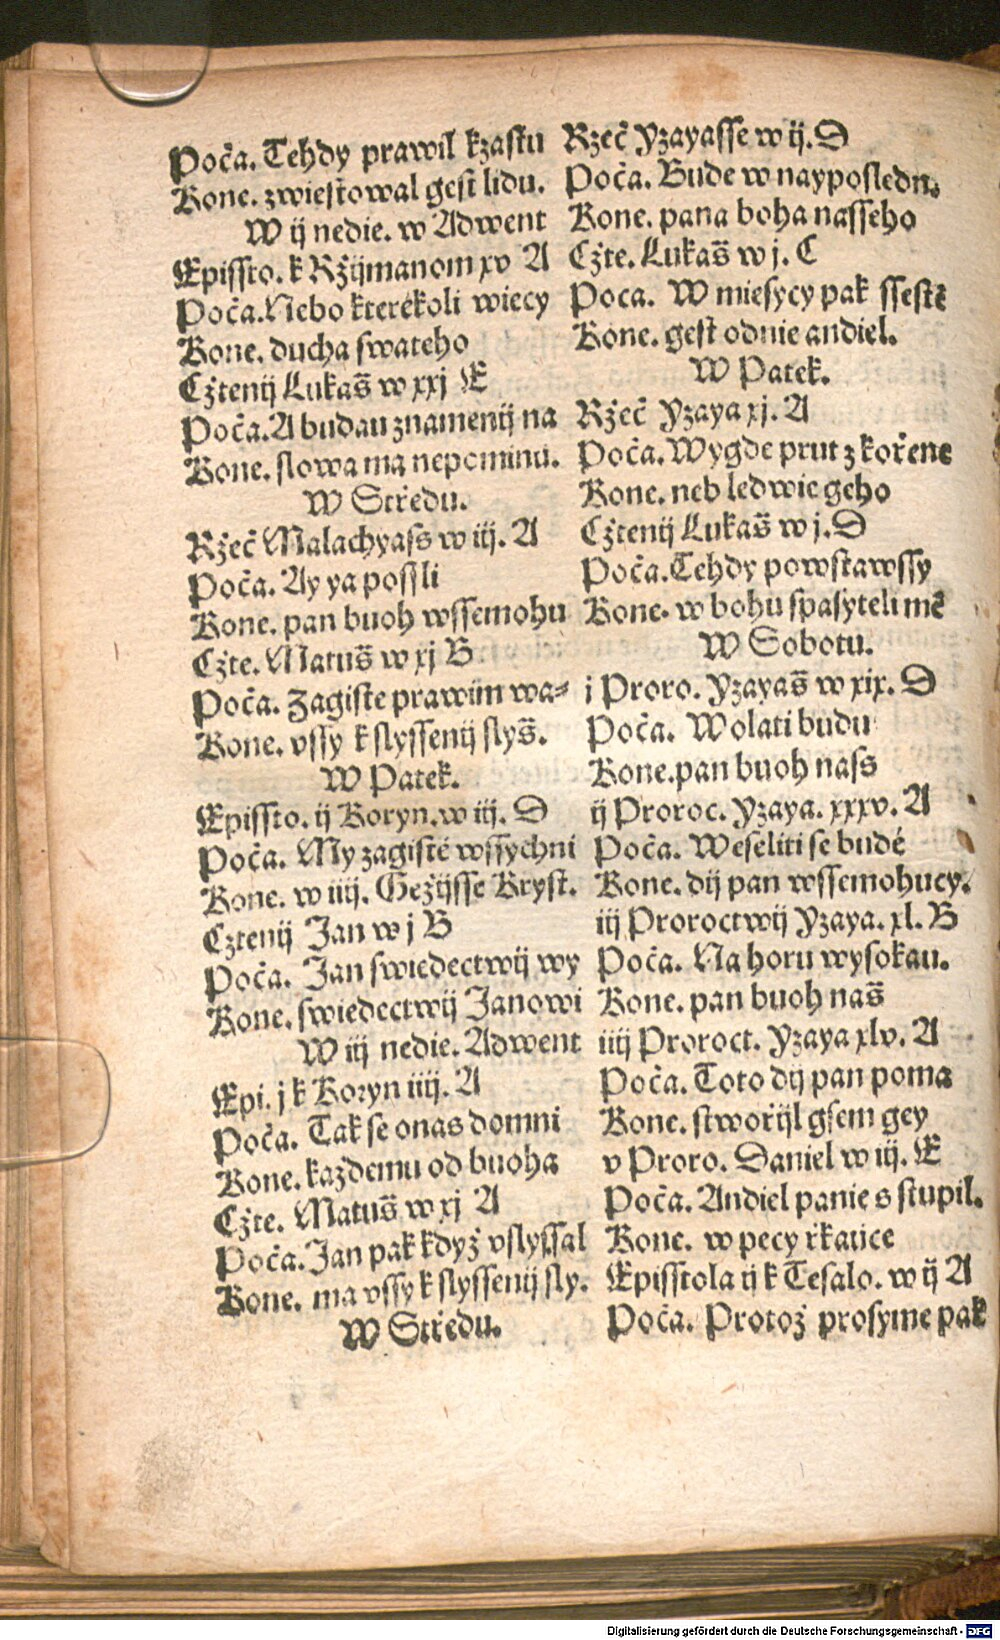 Poča. Tehdy prawil kzastu
Kone. zwiestowal gest lidu.
W ij nedie. w Adwent
Episſto. k Ržijmanom xv A
Poča. Nebo kterékoli wiecy
Kone. ducha swateho
Cžtenij Lukas̃ w xxj E
Poča. A budau znamenij na
Kone. slowa ma nepominu.
W Středu.
Ržeč Malachyass w iij. A
Poča. Ay ya possli
Kone. pan buoh wssemohu
Cžte. Matus̃ w xj B
Poča. Zagiste prawim wa⸗
Kone. vssy k slyssenij slys̃.
W Patek.
Epissto. ij Koryn. w iij. D
Poča. My zagisté wssychni
Kone. w iiij. Gežijsse Kryst.
Cztenij Jan w j B
Poča. Jan swiedectwij wy
Kone. swiedectwij Janowi
W iij nedie. Adwent
Epi. j k Koryn iiij. A
Poča. Tak se onas domni
Kone. každemu od buoha
Cžte. Matus̃ w xj A
Poča. Jan pak když vslyssal
Kone. ma vssy k slyssenij sly.
W Středu.
Rzeč Yzayasse w ij. D
Poča. Bude w nayposledn.
Kone. pana boha nasseho
Cžte. Lukas̃ w j. C
Poca. W miesycy pak ssestē
Kone. gest odnie andiel.
W Patek.
Ržeč Yzaya xj. A
Poča. Wygde prut z kořene
Kone. neb ledwie geho
Cžtenij Lukas̃ w j. D
Poča. Tehdy powstawssy
Kone. w bohu spasyteli mē
W Sobotu.
j Proro. Yzayas̃ w xix. D
Poča. Wolati budu
Kone. pan buoh nass
ij Proroc. Yzaya. xxxv. A
Poča. Weseliti se budé
Kone. dij pan wssemohucy.
iij Proroctwij Yzaya. xl. B
Poča. Na horu wysokau.
Kone. pan buoh nas̃
iiij Proroct. Yzaya xlv. A
Poča. Toto dij pan poma
Kone. stwořijl gsem gey
v Proro. Daniel w iij. E
Poča. Andiel panie s stupil.
Kone. w pecy řkauce
Episstola ij k Tesalo. w ij A
Poča. Protož prosyme pak
Digitalisierung gefördert durch die Deutsche Forschungsgemeinschaft - DFG